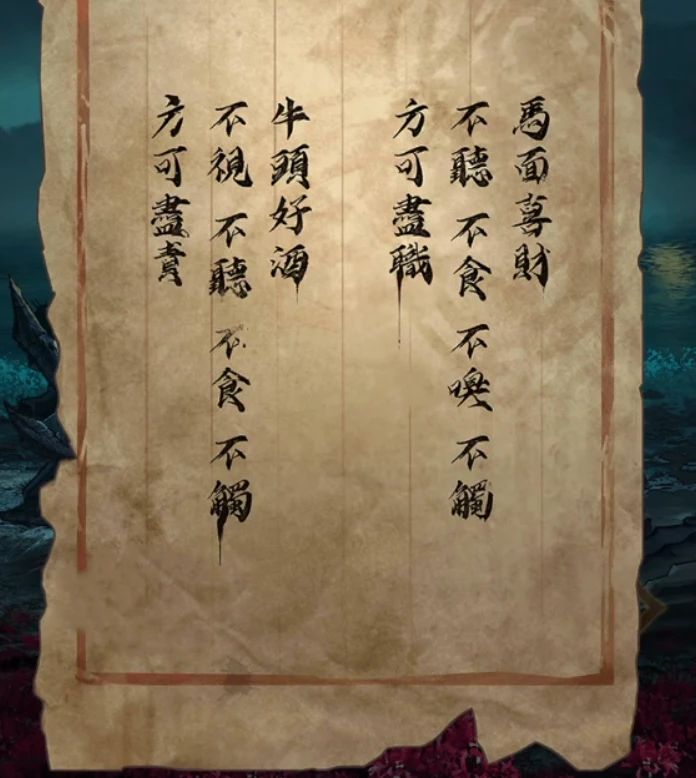 馬面喜財
不聽 不食 不嗅 不觸
方可盡職
牛頭好酒
不視 不聽 不食 不觸
方可盡責